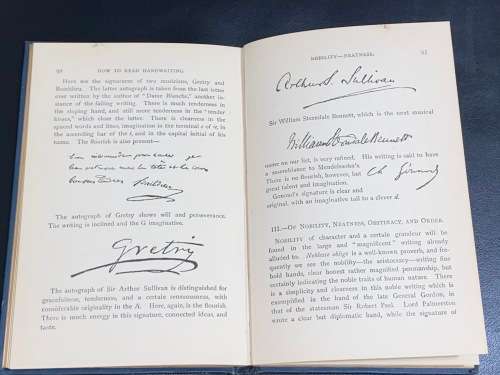 90 HOW TO READ HANDWRITING.
Here are the signatures of two musicians, Gretry and
Boieldieu. The latter autograph is taken from the last letter
ever written by the author of "Dame Blanche," another
instance of the falling writing. There is much tenderness in
the sloping hand, and still more tenderness in the "tender
hooks," which close the latter. There is clearness in the
spaced words and lines, imagination in the terminal s or n, in
the ascending bar of the t, and in the capital initial of his
name. The flourish is also present—
The autograph of Gretry shows will and perseverance.
The writing is inclined and the G imaginative.
Gretry
The autograph of Sir Arthur Sullivan is distinguished for
gracefulness, tenderness, and a certain sensuousness, with
considerable originality in the A. Here, again, is the flourish
There is much energy in this signature, connected ideas, and
taste.
NOBILITY—NEATNESS. 91
Arthur S Sullivan
Sir William Sterndale Bennett, which is the next musical
William Sterndale Bennett
name on my list, is very refined. His writing is said to have
a resemblance to Mendelssohn's
There is no flourish, however, but
great talent and imagination.
Ch Gounod
Gounod's signature is clear and
original, with an imaginative tail to a clever d.
III.—OF NOBILITY, NEATNESS, OBSTINACY, AND ORDER.
NOBILITY of character and a certain grandeur will be
found in the large and "magnificent" writing already
alluded to. Noblesse oblige is a well-known proverb, and fre-
quently we see the nobility—the aristocracy—writing fine
bold hands, clear honest rather magnified penmanship, but
certainly indicating the noble traits of human nature. There
is a simplicity and clearness in this noble writing which is
exemplified in the hand of the late General Gordon, in
that of the statesman Sir Robert Peel. Lord Palmerston
wrote a clear but diplomatic hand, while the signature of